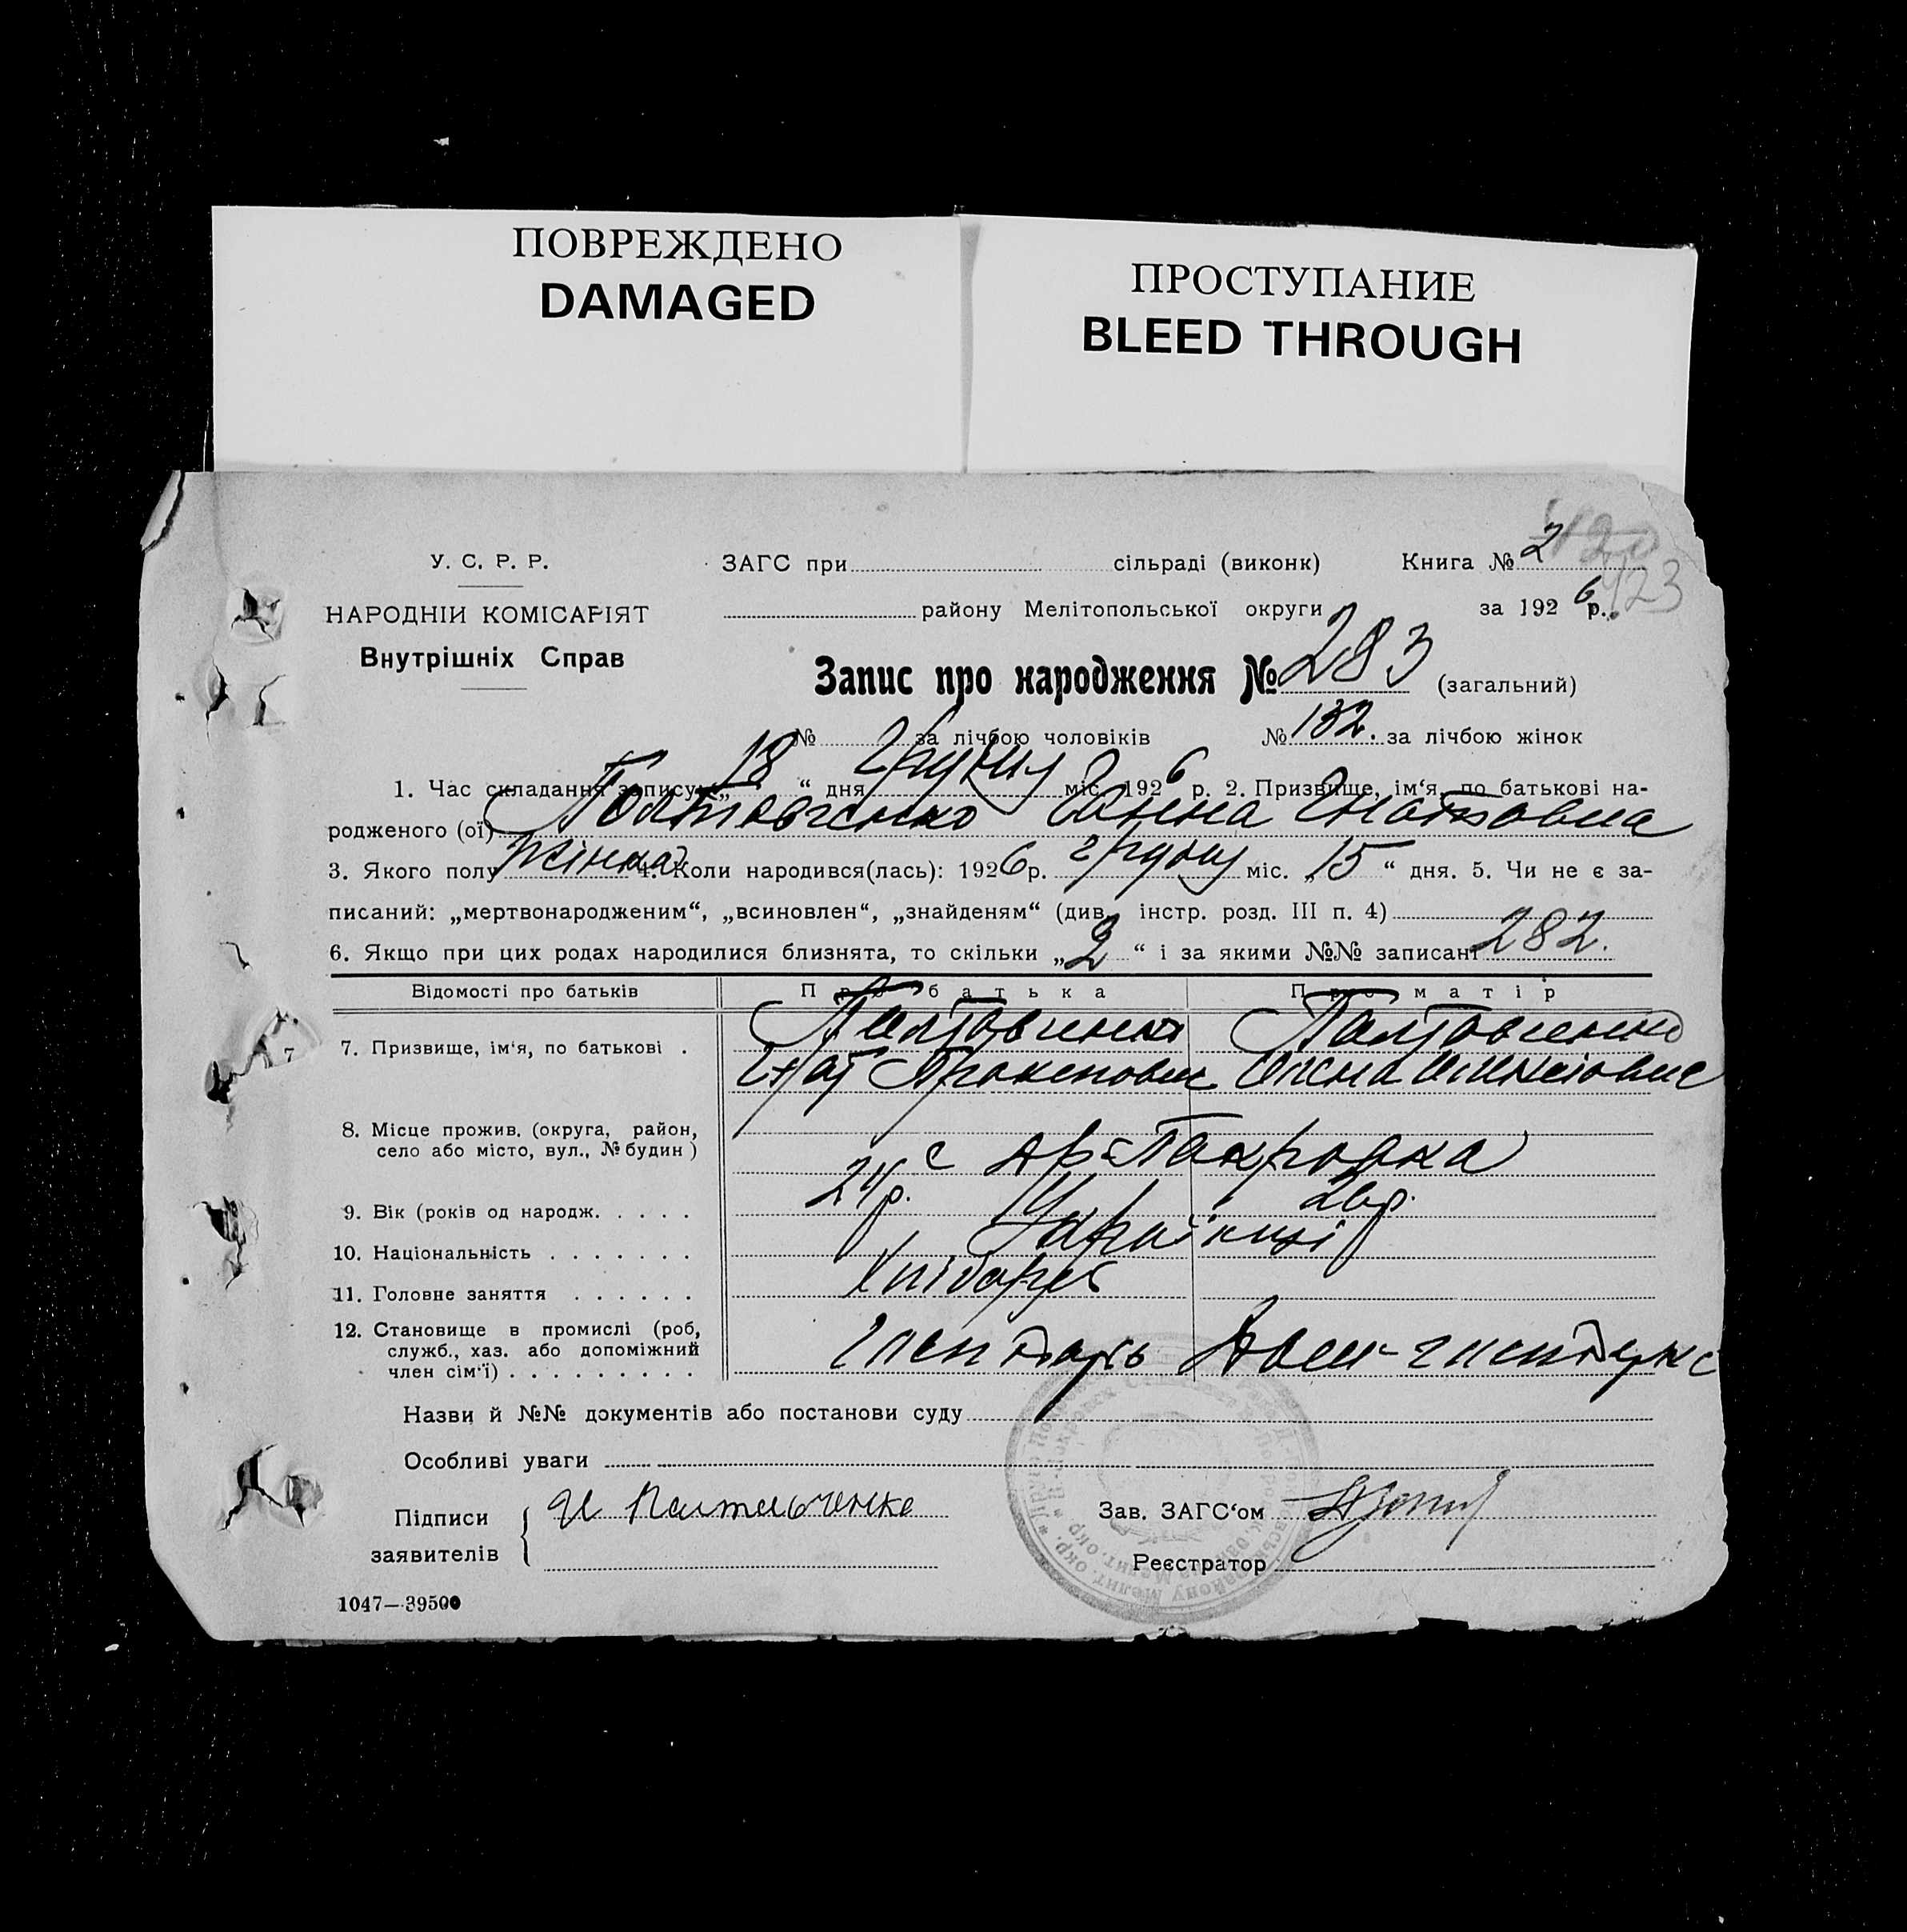 ПОВРЕЖДЕНО
DAMAGED
ПРОСТУПАНИЕ
BLEED THROUGH
У. С. Р. Р.
НАРОДНІИ КОМІСАРІЯТ
Внутрішніх Справ
ЗАГС при сільраді (виконк) Книга № 2
423
району Мелітопольської округи за 1926 р.
Запис про народження № 283 (загальний)
№ за лічбою чоловіків № 132. за лічбою жінок
1. Час складання запису: „ 18 “ дня Грудня міс. 1926 р. 2. Призвище, ім‘я, по батькові на-
родженого (ої) Полтавченко Ганна Гнатовна
3. Якого полу жінка 4. Коли народився(лась): 1926 р. грудня міс. „ 15 “ дня. 5. Чи не є за-
писаний: „мертвонародженим“, „всиновлен“, „знайденям“ (див. інстр. розд. III п. 4)
6. Якщо при цих родах народилися близнята, то скільки „ 2 “ і за якими №№ записані 282.
Відомості про батьків Про батька Про матір
7. Призвище, ім‘я, по батькові . Полтавченко Полтавченко
Гнат
8. Місце прожив. (округа, район,
село або місто, вул., № будин ) с Покровка
9. Вік (років од народж. . . . . 26 р.
10. Національність . . . . . . . Українці
11. Головне заняття . . . . . . Хлібороб
12. Становище в промислі (роб,
служб., хаз. або допоміжний
член сім‘ї) . . . . . . . . .
Назви й №№ документів або постанови суду
Особливі уваги
Підписи
заявителів
Полтавченко
Зав. ЗАГС‘ом
Реєстратор
1047—39500